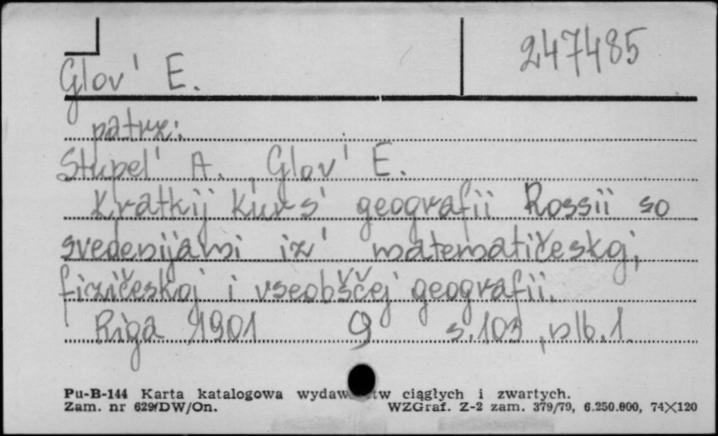 247485
Glov' E.
patrz:
Stupel' A., Glov' E.
Kratkij kurs' geografii Rossii so
svedenijami iz' matematičeskoj,
fizičeskoj i vseobščej geografii.
Riga 1901 9 s. 103, nlb. 1.
Pu-B-144 Karta katalogowa wydaw tw ciągłych i zwartych.
Zam. nr 629/DW/On. WZGraf. Z-2 zam. 379/79, 6.250.000, 74×120